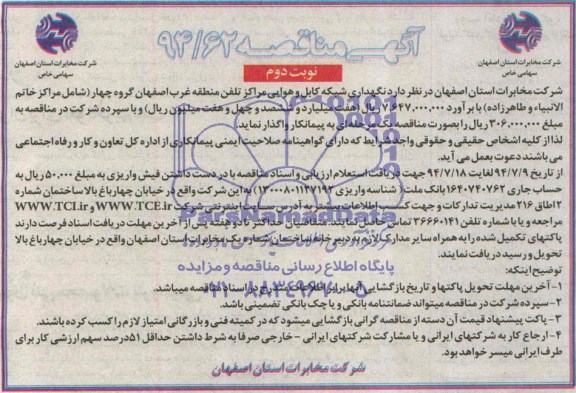 آگهی مناقصه ۹۴/۶۲
شرکت مخابرات استان اصفهان
سهامی خاص
نوبت دوم
شرکت مخابرات استان اصفهان
سهامی خاص
شرکت مخابرات استان اصفهان در نظر دارد نگهداری شبکه کابل و هوایی مراکز تلفن منطقه غرب اصفهان گروه چهار (شامل مراکز خاتم
الانبیاء و طاهرزاده) با برآورد ۷,۶۴۷,۰۰۰,۰۰۰ ریال (هفت میلیارد و ششصد و چهل و هفت میلیون ریال) و با سپرده شرکت در مناقصه به
مبلغ ۳۰۶,۰۰۰,۰۰۰ ریال را بصورت مناقصه یک مرحله‌ای به پیمانکار واگذار نماید.
لذا از کلیه اشخاص حقیقی و حقوقی واجد شرایط که دارای گواهینامه صلاحیت ایمنی پیمانکاری از اداره کل تعاون و کار و رفاه اجتماعی
می باشند دعوت بعمل می آید.
از تاریخ ۹۴/۷/۹ لغایت ۹۴/۷/۱۸ جهت دریافت استعلام ارزیابی و اسناد مناقصه با در دست داشتن فیش واریزی به مبلغ ۵۰,۰۰۰ ریال به
حساب جاری ۱۶۴۰۷۴۰۷۶۲ بانک ملت ( شناسه واریزی ۱۳۰۰۰۸۰۱۱۴۷۱۹۲) به این شرکت واقع در خیابان چهارباغ بالا ساختمان شماره
۲ اطاق ۲۱۶ مدیریت تدارکات و جهت کسب اطلاعات بیشتر به آدرس سایت اینترنتی شرکت WWW.TCE.ir و WWW.TCI.ir
مراجعه و یا با شماره تلفن ۳۶۶۶۰۱۴۱ تماس حاصل نمایند. متقاضیان حداکثر تا دو هفته پس از آخرین مهلت دریافت اسناد فرصت دارند
پاکتهای تکمیل شده را به همراه سایر مدارک لازم به دبیرخانه ساختمان شماره یک مخابرات استان اصفهان واقع در خیابان چهارباغ بالا
تحویل و رسید دریافت نمایند.
توضیح اینکه:
۱- آخرین مهلت تحویل پاکتها و تاریخ بازگشایی آنها برابر اطلاعات مندرج در اسناد مناقصه میباشد.
۲- سپرده شرکت در مناقصه میتواند ضمانتنامه بانکی و یا چک بانکی تضمینی باشد.
۳- پاکت پیشنهاد قیمت آن دسته از مناقصه گرانی بازگشایی میشود که در کمیته فنی و بازرگانی امتیاز لازم را کسب کرده باشند.
۴- ارجاع کار به شرکتهای ایرانی و یا مشارکت شرکتهای ایرانی - خارجی صرفا به شرط داشتن حداقل ۵۱درصد سهم ارزشی کار برای
طرف ایرانی میسر خواهد بود.
شرکت مخابرات استان اصفهان
ParsNamadData
پایگاه اطلاع رسانی مناقصه و مزایده